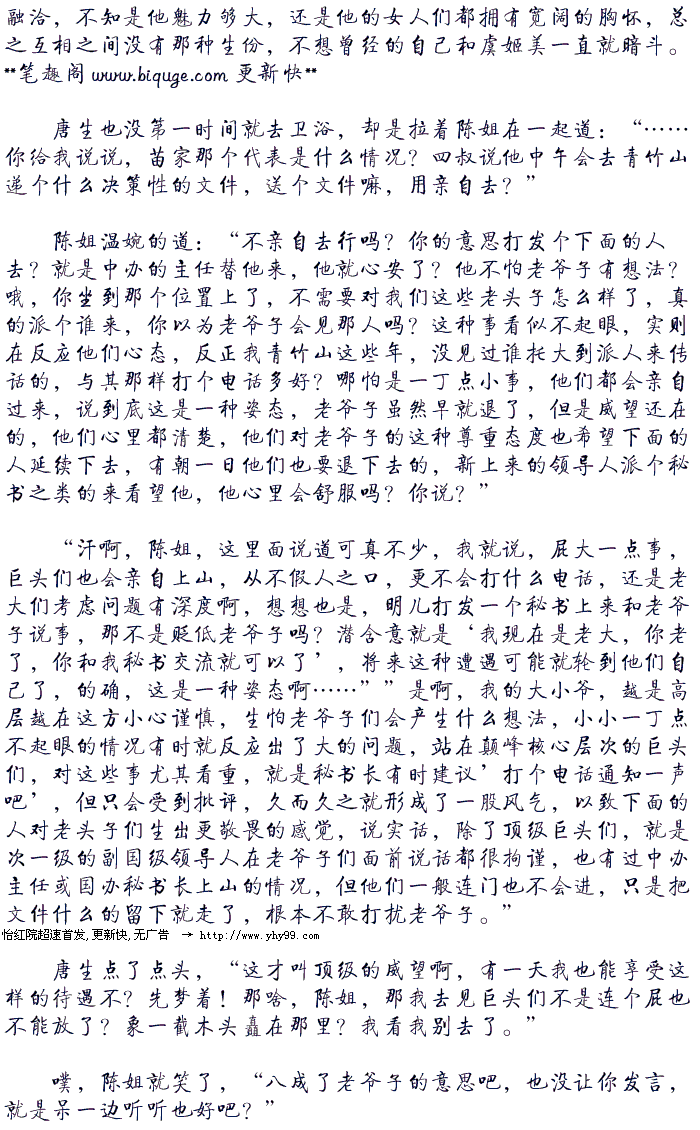 融洽，不知是他魅力够大，还是他的女人们都拥有宽阔的胸怀，总
之互相之间没有那种生份，不想曾经的自己和虞姬美一直就暗斗。
**笔趣阁 www.biquge.com 更新快**
唐生也没第一时间就去卫浴，却是拉着陈姐在一起道：“……
你给我说说，苗家那个代表是什么情况？四叔说他中午会去青竹山
递个什么决策性的文件，送个文件嘛，用亲自去？”
陈姐温婉的道：“不亲自去行吗？你的意思打发个下面的人
去？就是中办的主任替他来，他就心安了？他不怕老爷子有想法？
哦，你坐到那个位置上了，不需要对我们这些老头子怎么样了，真
的派个谁来，你以为老爷子会见那人吗？这种事看似不起眼，实则
在反应他们心态，反正我青竹山这些年，没见过谁托大到派人来传
话的，与其那样打个电话多好？哪怕是一丁点小事，他们都会亲自
过来，说到底这是一种姿态，老爷子虽然早就退了，但是威望还在
的，他们心里都清楚，他们对老爷子的这种尊重态度也希望下面的
人延续下去，有朝一日他们也要退下去的，新上来的领导人派个秘
书之类的来看望他，他心里会舒服吗？你说？”
“汗啊，陈姐，这里面说道可真不少，我就说，屁大一点事，
巨头们也会亲自上山，从不假人之口，更不会打什么电话，还是老
大们考虑问题有深度啊，想想也是，明儿打发一个秘书上来和老爷
子说事，那不是贬低老爷子吗？潜含意就是‘我现在是老大，你老
了，你和我秘书交流就可以了’，将来这种遭遇可能就轮到他们自
己了，的确，这是一种姿态啊……””是啊，我的大小爷，越是高
层越在这方小心谨慎，生怕老爷子们会产生什么想法，小小一丁点
不起眼的情况有时就反应出了大的问题，站在颠峰核心层次的巨头
们，对这些事尤其看重，就是秘书长有时建议’打个电话通知一声
吧’，但只会受到批评，久而久之就形成了一股风气，以致下面的
人对老头子们生出更敬畏的感觉，说实话，除了顶级巨头们，就是
次一级的副国级领导人在老爷子们面前说话都很拘谨，也有过中办
主任或国办秘书长上山的情况，但他们一般连门也不会进，只是把
文件什么的留下就走了，根本不敢打扰老爷子。”
怡红院超速首发,更新快,无广告 → http://www.yhy99.com
唐生点了点头，“这才叫顶级的威望啊，有一天我也能享受这
样的待遇不？先梦着！那啥，陈姐，那我去见巨头们不是连个屁也
不能放了？象一截木头矗在那里？我看我别去了。”
噗，陈姐就笑了，“八成了老爷子的意思吧，也没让你发言，
就是呆一边听听也好吧？”